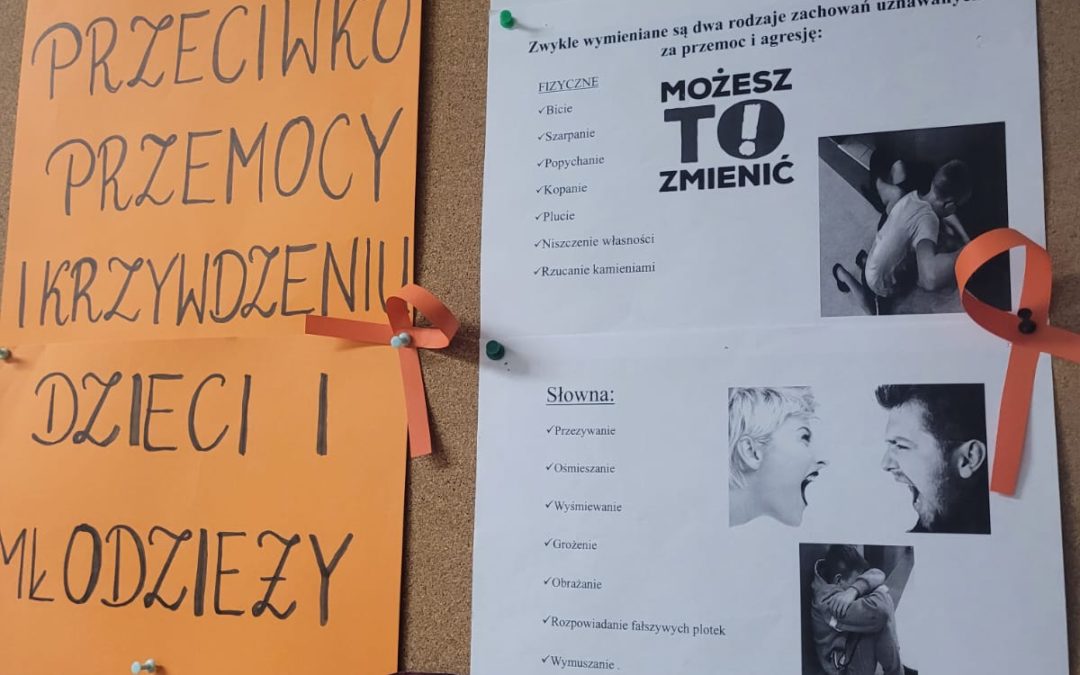 PRZECIWKO
PRZEMOCY
I KRZYWDZENIU
DZIECI I
MŁODZIEŻY
Zwykle wymieniane są dwa rodzaje zachowań uznawanych
za przemoc i agresję:
FIZYCZNE
✓Bicie
✓Szarpanie
✓Popychanie
✓Kopanie
✓Plucie
✓Niszczenie własności
✓Rzucanie kamieniami
MOŻESZ
TO!
ZMIENIĆ
Słowna:
✓Przezywanie
✓Ośmieszanie
✓Wyśmiewanie
✓Grożenie
✓Obrażanie
✓Rozpowiadanie fałszywych plotek
✓Wymuszanie .